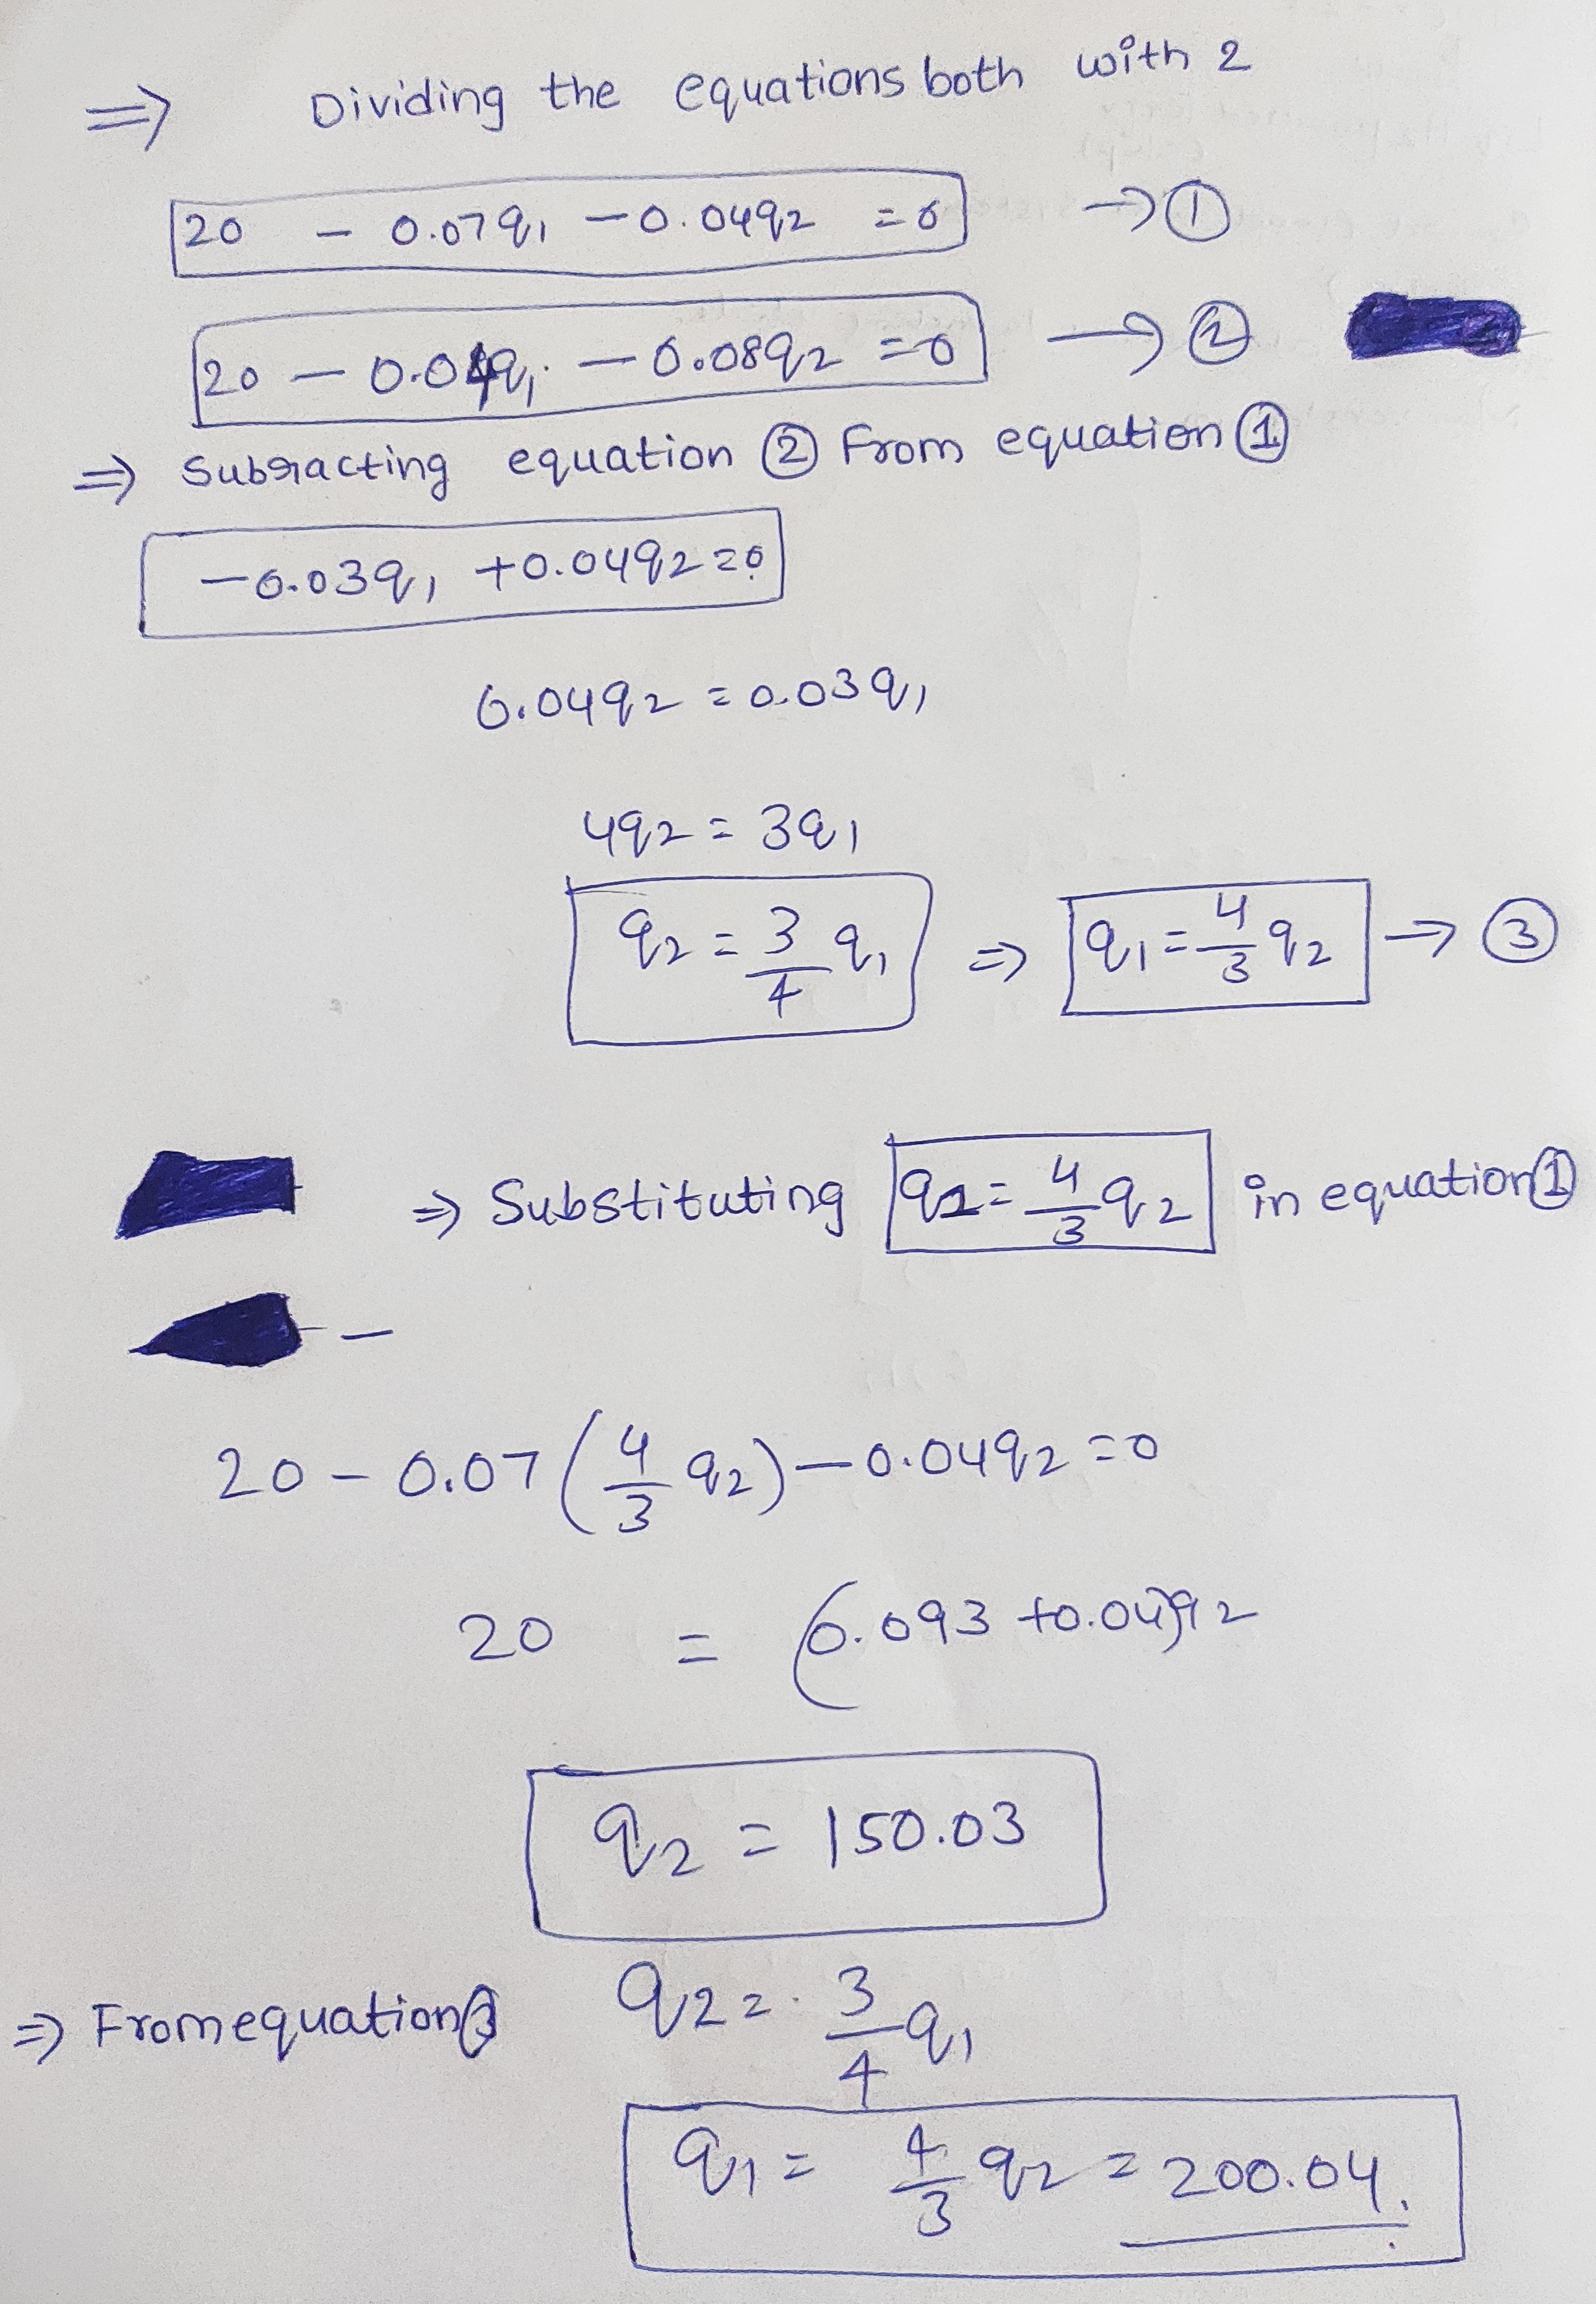 ⇒ Dividing the equations both with 2
20 - 0.07q₁ - 0.04q₂ = 0 → ①
20 - 0.04q₁ - 0.08q₂ = 0 → ②
⇒ Subracting equation ② From equation ①
-0.03q₁ + 0.04q₂ = 0
0.04q₂ = 0.03q₁
4q₂ = 3q₁
q₂ = 3/4 q₁ ⇒ q₁ = 4/3 q₂ → ③
⇒ Substituting q₁ = 4/3 q₂ in equation ①
-
20 - 0.07 (4/3 q₂) - 0.04q₂ = 0
20 = (0.093 + 0.04)q₂
q₂ = 150.03
⇒ From equation ③ q₂ = 3/4 q₁
q₁ = 4/3 q₂ = 200.04.